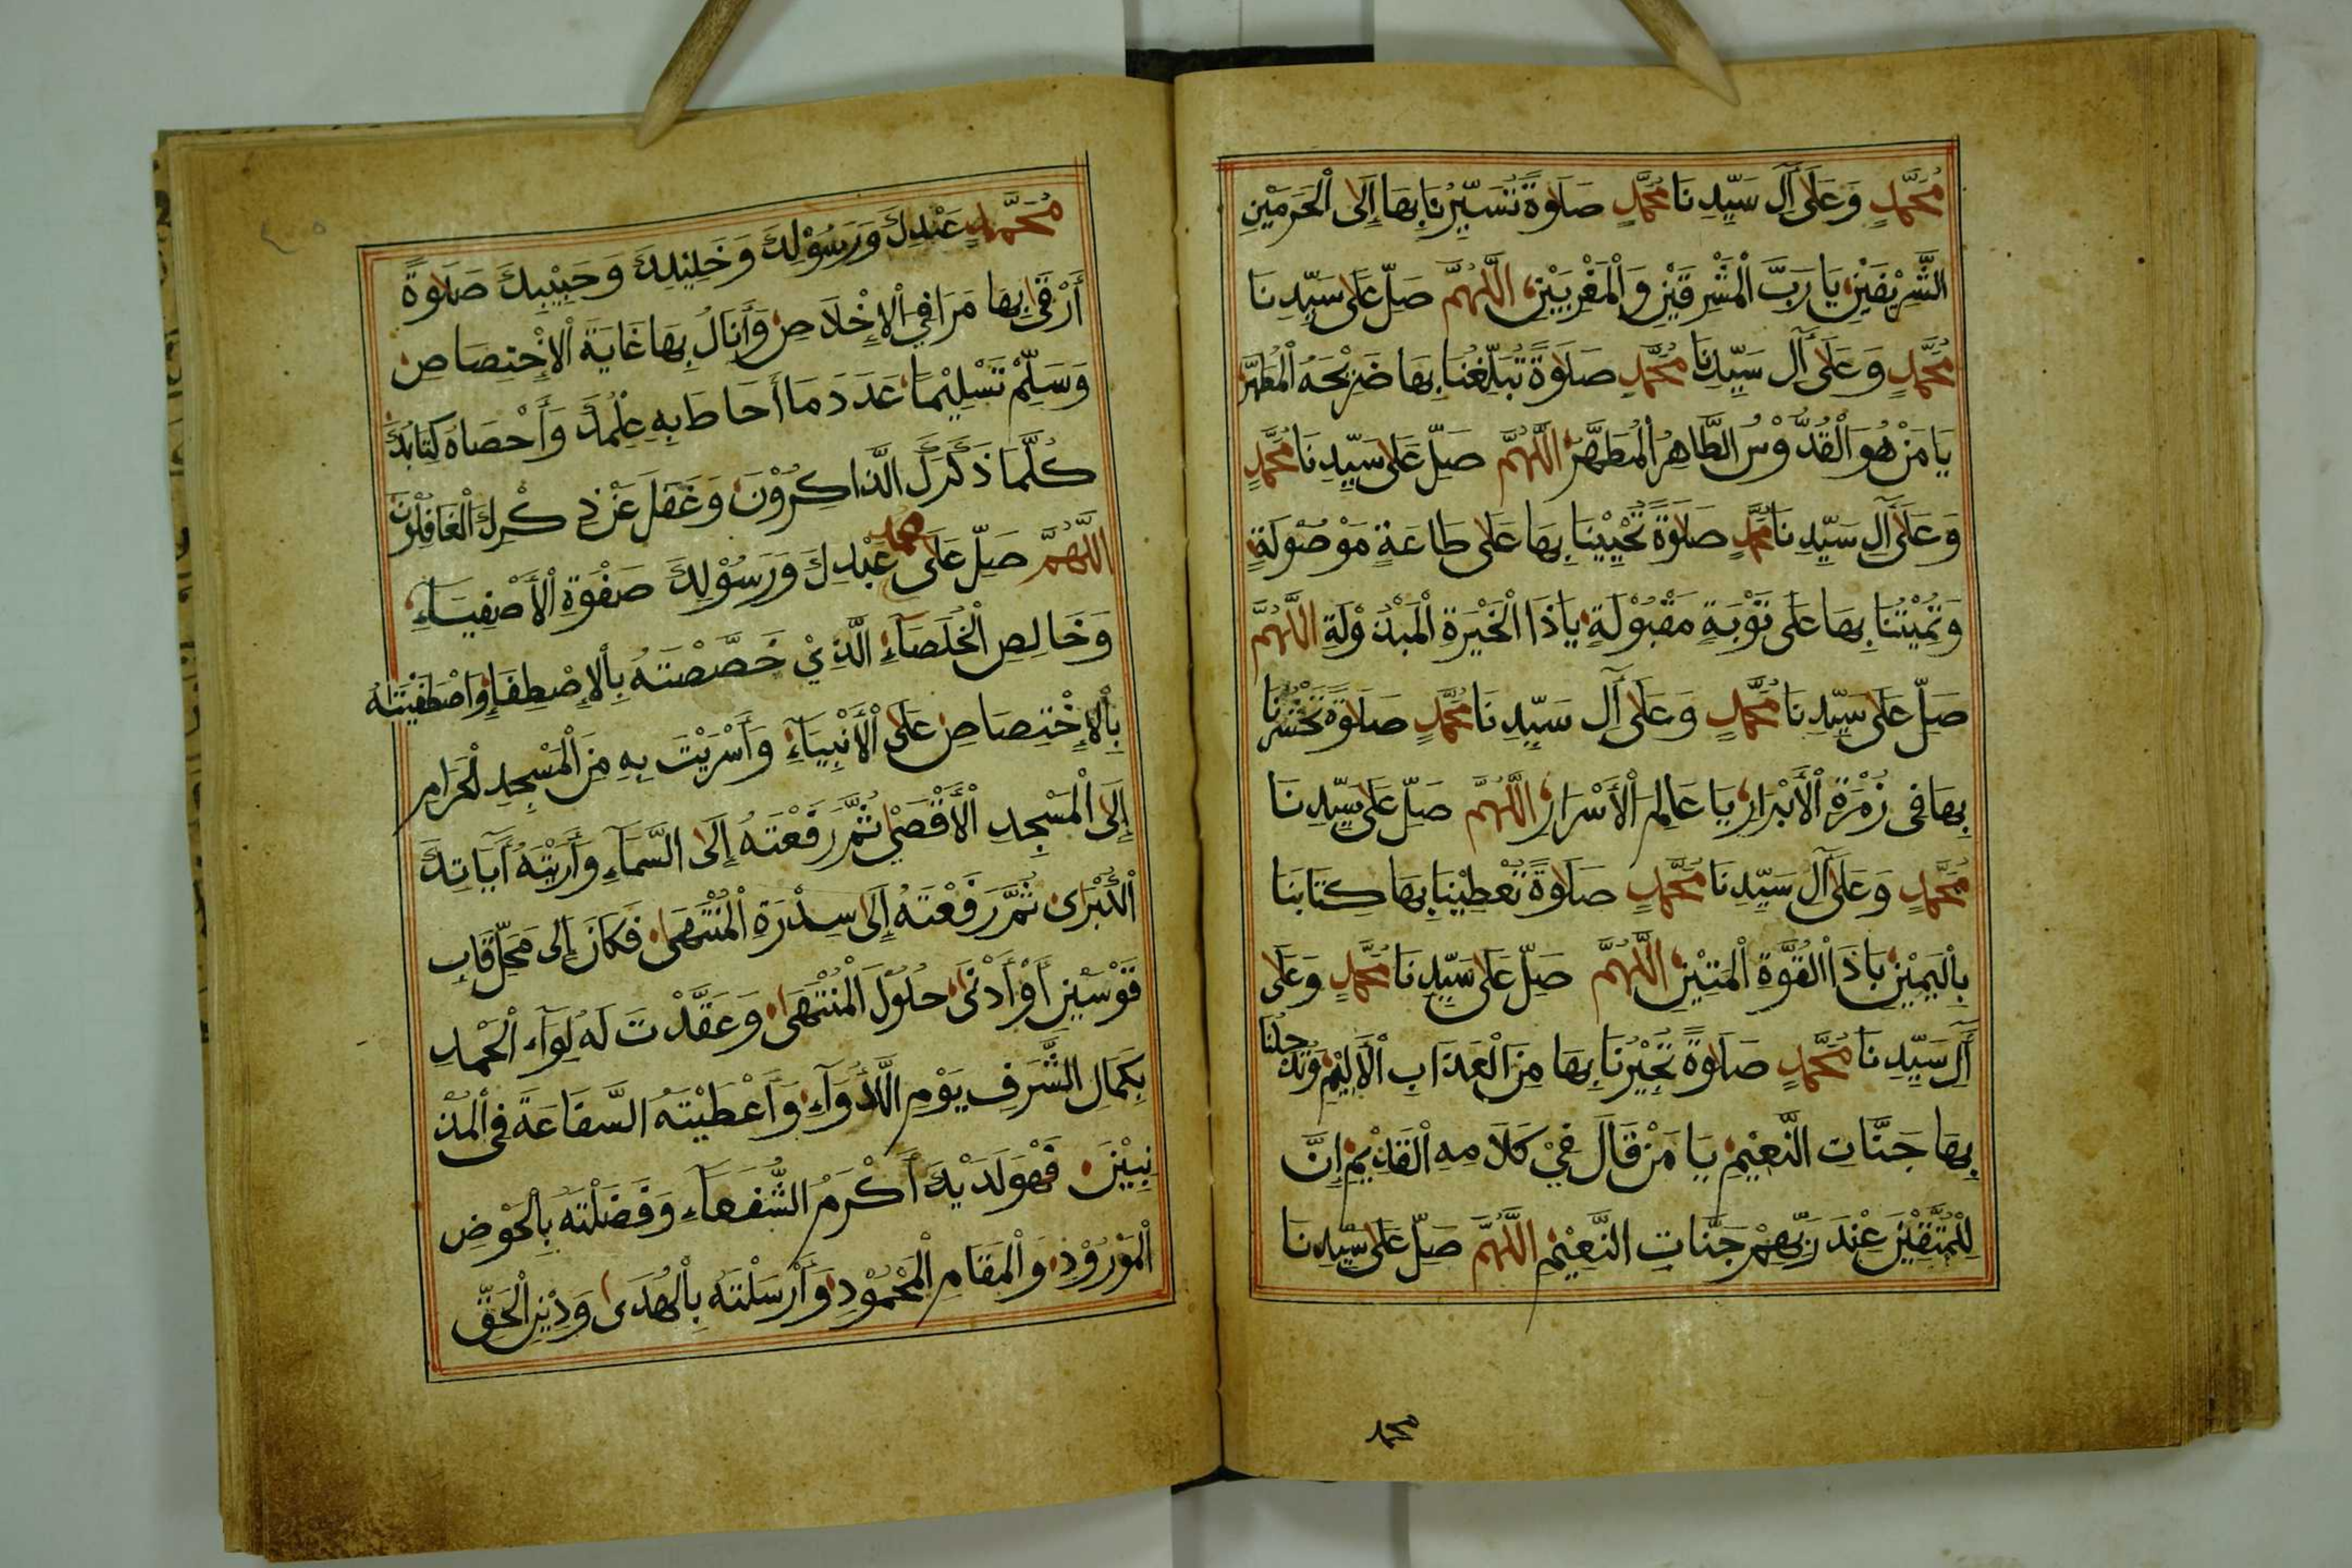 مُحَمَّدٍ وَعَلَى آلِ سَيِّدِنَا مُحَمَّدٍ صَلَوةً تُسَيِّرُنَا بِهَا إِلَى الْحَرَمَيْنِ
الشَّرِيفَيْنِ يَا رَبَّ الْمَشْرِقَيْنِ وَالْمَغْرِبَيْنِ اللَّهُمَّ صَلِّ عَلَى سَيِّدِنَا
مُحَمَّدٍ وَعَلَى آلِ سَيِّدِنَا مُحَمَّدٍ صَلَوةً تُبَلِّغُنَا بِهَا ضَرِيْحَهُ الْمُطَهَّرَ
يَا مَنْ هُوَ الْقُدُّوْسُ الطَّاهِرُ الْمُطَهَّرُ اللَّهُمَّ صَلِّ عَلَى سَيِّدِنَا مُحَمَّدٍ
وَعَلَى آلِ سَيِّدِنَا مُحَمَّدٍ صَلَاوةً تُحْيِيْنَا بِهَا عَلَى طَاعَةٍ مَوْصُوْلَةٍ
وَتُمِيْتُنَا بِهَا عَلَى تَوْبَةٍ مَقْبُوْلَةٍ يَا ذَا الْخَيْرَةِ الْمَبْذُوْلَةِ اللَّهُمَّ
صَلِّ عَلَى سَيِّدِنَا مُحَمَّدٍ وَعَلَى آلِ سَيِّدِنَا مُحَمَّدٍ صَلَاوةً تَحْشُرُنَا
بِهَا فِى زُمْرَةِ الْأَبْرَارِ يَا عَالِمَ الْأَسْرَارِ اللَّهُمَّ صَلِّ عَلَى سَيِّدِنَا
مُحَمَّدٍ وَعَلَى آلِ سَيِّدِنَا مُحَمَّدٍ صَلَاوةً تُعْطِيْنَا بِهَا كِتَابَنَا
بِالْيَمِيْنِ يَا ذَا الْقُوَّةِ الْمَتِيْنِ اللَّهُمَّ صَلِّ عَلَى سَيِّدِنَا مُحَمَّدٍ وَعَلَى
آلِ سَيِّدِنَا مُحَمَّدٍ صَلَاوةً تُجِيْرُنَا بِهَا مِنَ الْعَذَابِ الْأَلِيْمِ وَتُدْخِلُنَا
بِهَا جَنَّاتِ النَّعِيْمِ يَا مَنْ قَالَ فِيْ كَلَامِهِ الْقَدِيْمِ إِنَّ
لِلْمُتَّقِيْنَ عِنْدَ رَبِّهِمْ جَنَّاتِ النَّعِيْمِ اللَّهُمَّ صَلِّ عَلَى سَيِّدِنَا
محمد
مُحَمَّدٍ عَبْدِكَ وَرَسُوْلِكَ وَخَلِيْلِكَ وَحَبِيْبِكَ صَلَاوةً
أَرْقَى بِهَا مَرَاقِي الْإِخْلَاصِ وَأَنَالُ بِهَا غَايَةَ الْإِخْتِصَاصِ
وَسَلِّمْ تَسْلِيْمًا عَدَدَ مَا أَحَاطَ بِهِ عِلْمُكَ وَأَحْصَاهُ كِتَابُكَ
كُلَّمَا ذَكَرَكَ الذَّاكِرُوْنَ وَغَفَلَ عَنْ ذِكْرِكَ الْغَافِلُوْنَ
اللَّهُمَّ صَلِّ عَلَى محمد عَبْدِكَ وَرَسُوْلِكَ صَفْوَةِ الْأَصْفِيَاءِ
وَخَالِصِ الْخُلَصَاءِ الَّذِيْ خَصَّصْتَهُ بِالْإِصْطِفَاءِ وَاصْطَفَيْتَهُ
بِالْإِخْتِصَاصِ عَلَى الْأَنْبِيَاءِ وَأَسْرَيْتَ بِهِ مِنَ الْمَسْجِدِ الْحَرَامِ
إِلَى الْمَسْجِدِ الْأَقْصَى ثُمَّ رَفَعْتَهُ إِلَى السَّمَاءِ وَأَرَيْتَهُ آيَاتِكَ
الْكُبْرَى ثُمَّ رَفَعْتَهُ إِلَى سِدْرَةِ الْمُنْتَهَى فَكَانَ إِلَى مَحَلِّ قَابِ
قَوْسَيْنِ أَوْ أَدْنَى حُلُوْلَ الْمُنْتَهَى وَعَقَّدْتَ لَهُ لِوَاءَ الْحَمْدِ
بِكَمَالِ الشَّرَفِ يَوْمِ اللَّأْوَاءِ وَأَعْطَيْتَهُ الشَّفَاعَةَ فِى الْمُذْ
نِبِيْنَ فَهُوَ لَدَيْكَ أَكْرَمُ الشُّفَعَاءِ وَفَضَّلْتَهُ بِالْحَوْضِ
الْمَوْرُوْدِ وَالْمَقَامِ الْمَحْمُوْدِ وَأَرْسَلْتَهُ بِالْهُدَى وَدِيْنِ الْحَقِّ